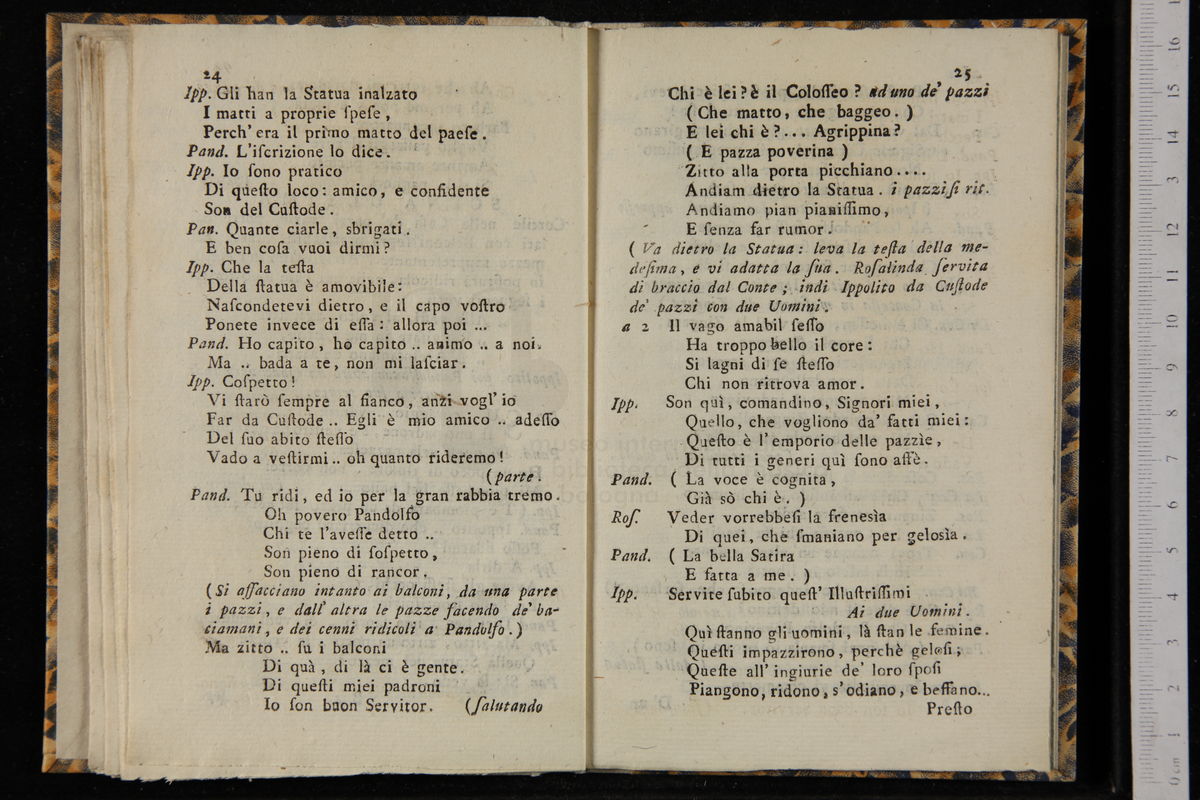 24
Ipp. Gli han la Statua inalzato
I matti a proprie ſpeſe,
Perch' era il primo matto del paeſe.
Pand. L'iſcrizione lo dice.
Ipp. Io ſono pratico
Di queſto loco: amico, e confidente
Son del Cuſtode.
Pan. Quante ciarle, sbrigati.
E ben coſa vuoi dirmi?
Ipp. Che la teſta
Della ſtatua è amovibile:
Naſcondetevi dietro, e il capo voſtro
Ponete invece di eſſa: allora poi ...
Pand. Ho capito, ho capito .. animo .. a noi.
Ma .. bada a te, non mi laſciar.
Ipp. Coſpetto!
Vi ſtarò ſempre al fianco, anzi vogl' io
Far da Cuſtode .. Egli è mio amico .. adeſſo
Del ſuo abito ſteſſo
Vado a veſtirmi .. oh quanto rideremo!
(parte.
Pand. Tu ridi, ed io per la gran rabbia tremo.
Oh povero Pandolfo
Chi te l'aveſſe detto ..
Son pieno di ſoſpetto,
Son pieno di rancor.
(Si affacciano intanto ai balconi, da una parte
i pazzi, e dall' altra le pazze facendo de' ba-
ciamani, e dei cenni ridicoli a Pandolfo.)
Ma zitto .. ſu i balconi
Di quà, di là ci è gente.
Di queſti miei padroni
Io ſon buon Servitor. (ſalutando
25
Chi è lei? è il Coloſſeo? ad uno de' pazzi
(Che matto, che baggeo.)
E lei chi è?... Agrippina?
(E pazza poverina)
Zitto alla porta picchiano....
Andiam dietro la Statua. i pazzi ſi rit.
Andiamo pian pianiſſimo,
E ſenza far rumor.
(Va dietro la Statua: leva la teſta della me-
deſima, e vi adatta la ſua. Roſalinda ſervita
di braccio dal Conte; indi Ippolito da Cuſtode
de' pazzi con due Uomini.
a 2 Il vago amabil ſeſſo
Ha troppo bello il core:
Si lagni di ſe ſteſſo
Chi non ritrova amor.
Ipp. Son quì, comandino, Signori miei,
Quello, che vogliono da' fatti miei:
Queſto è l'emporio delle pazzìe,
Di tutti i generi quì ſono affè.
Pand. (La voce è cognita,
Già sò chi è.)
Roſ. Veder vorrebbeſi la freneſìa
Di quei, che ſmaniano per geloſìa.
Pand. (La bella Satira
E fatta a me.)
Ipp. Servite ſubito queſt' Illuſtriſſimi
Ai due Uomini.
Quì ſtanno gli uomini, là ſtan le femine.
Queſti impazzirono, perchè geloſi;
Queſte all' ingiurie de' loro ſpoſi
Piangono, ridono, s'odiano, e beffano...
Preſto